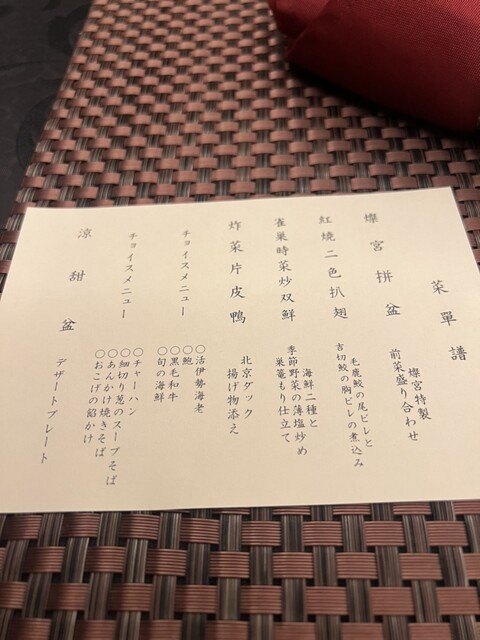 菜單譜
燦宮拼盆
燦宮特製
前菜盛り合わせ
紅燒二色扒翅
毛鹿鮫の尾ビレと
吉切鮫の胸ビレの煮込み
雀巣時菜炒双鮮
海鮮二種と
季節野菜の薄塩炒め
巣篭もり仕立て
炸菜片皮鴨
北京ダック
揚げ物添え
チョイスメニュー
〇活伊勢海老
〇鮑
〇黒毛和牛
〇旬の海鮮
チョイスメニュー
〇チャーハン
〇細切り葱のスープそば
〇あんかけ焼きそば
〇おこげの餡かけ
涼甜盆
デザートプレート